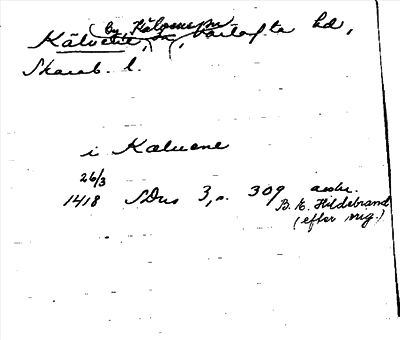 by, Kälvene sn
Kälvene, Vartofta hd,
Skarab. l.
i Kaluene
26/3
1418 SDns 3, s. 309 avskr.
B. E. Hildebrand
(efter orig.)